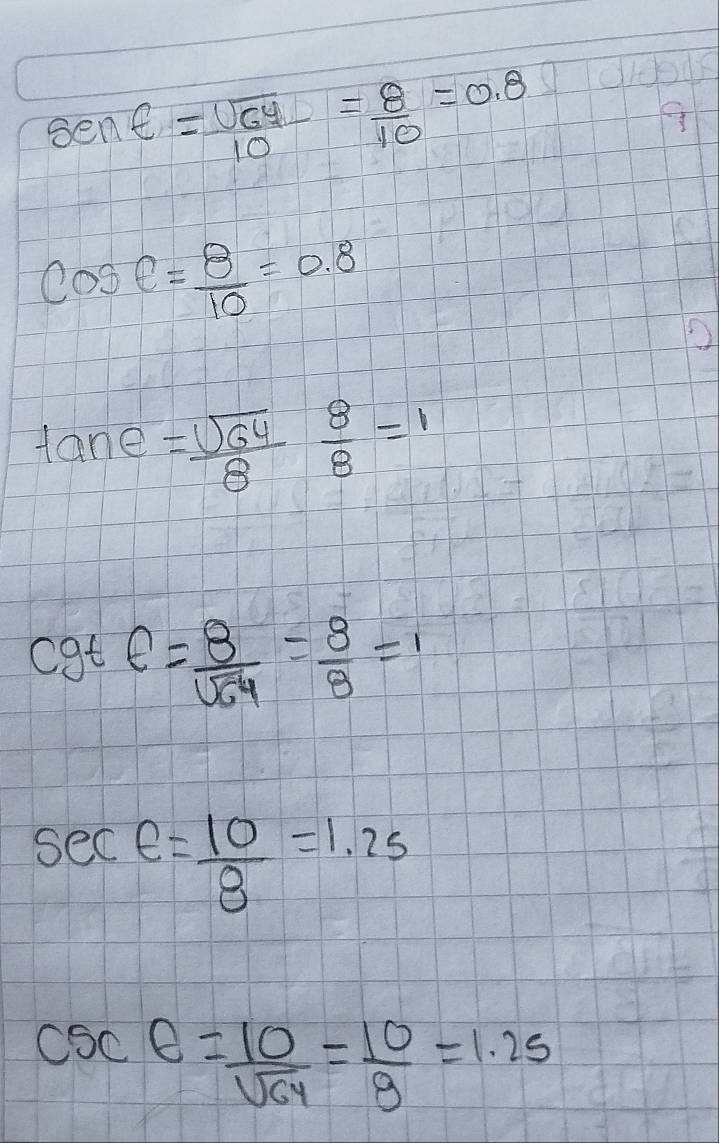 sen e = √64/10 = 8/10 = 0.8
cos e = 8/10 = 0.8
tan e = √64/8 8/8 = 1
cgt e = 8/√64 = 8/8 = 1
sec e = 10/8 = 1.25
csc e = 10/√64 = 10/8 = 1.25